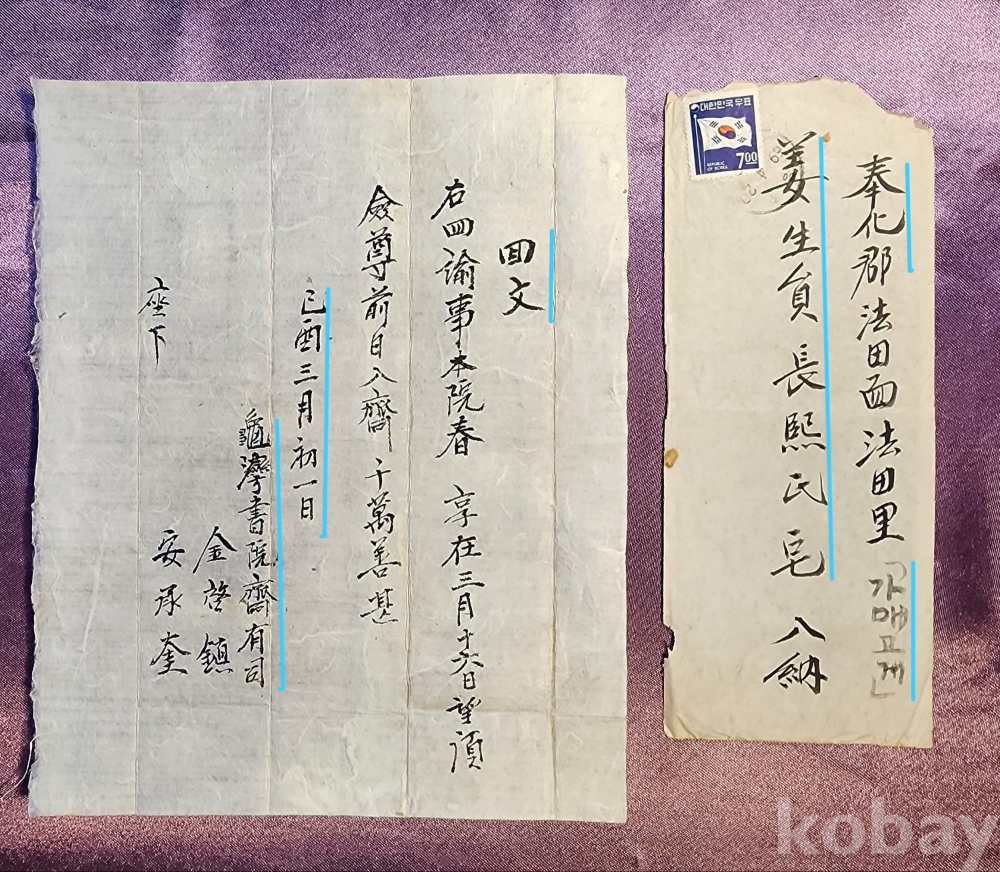 回文
右回諭事本院春 享在三月十六日望須
僉尊前日入齋千萬善甚
己酉三月初一日
龜灣書院齋有司
金啓鎭
安承奎
座下
대한민국우표
REPUBLIC OF KOREA
700
奉化郡法田面法田里「가매고개」
姜生員長熙氏宅 入納
kobay